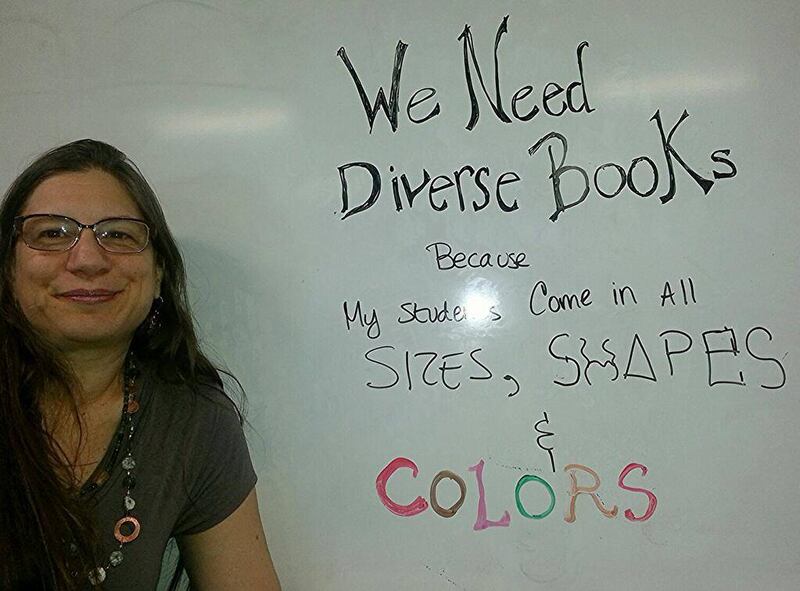 We Need
Diverse Books
Because
My Students Come in All
SIZES, SHAPES
&
COLORS